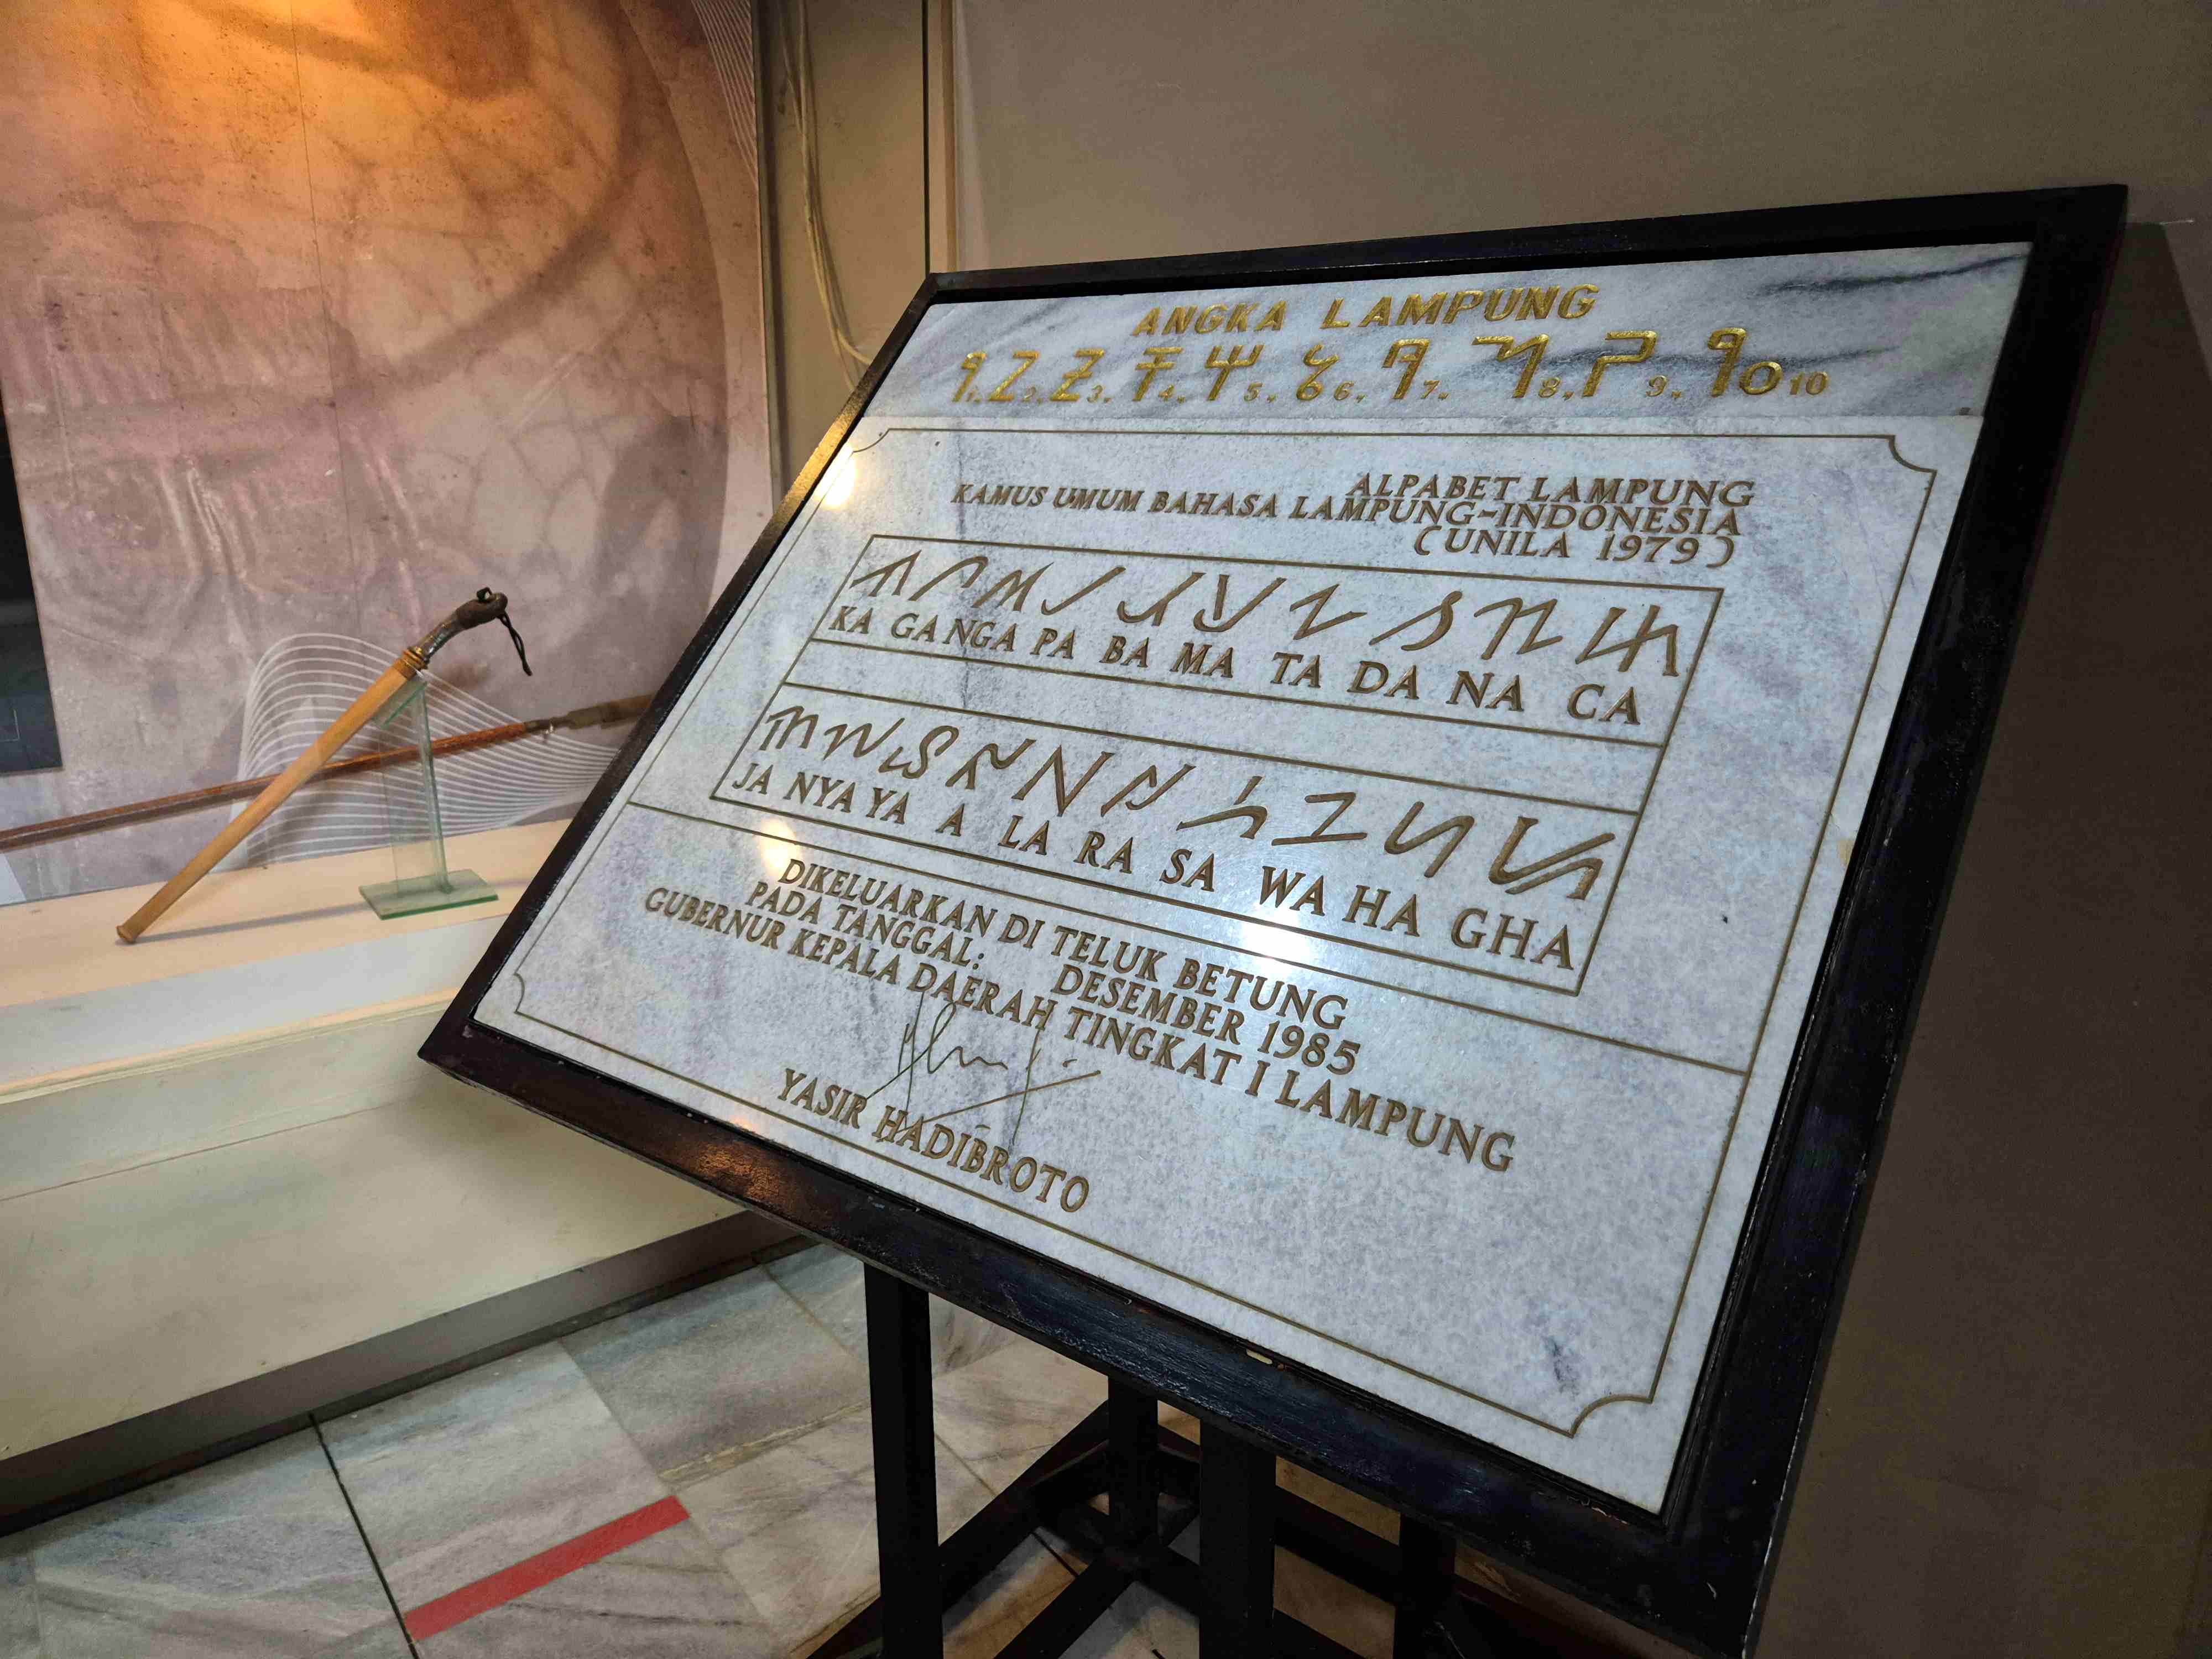 ANGKA LAMPUNG
1. 2. 3. 4. 5. 6. 7. 8. 9. 10
ALPABET LAMPUNG
KAMUS UMUM BAHASA LAMPUNG-INDONESIA
(UNILA 1979)
KA GA NGA PA BA MA TA DA NA CA
JA NYA YA A LA RA SA WA HA GHA
DIKELUARKAN DI TELUK BETUNG
PADA TANGGAL: DESEMBER 1985
GUBERNUR KEPALA DAERAH TINGKAT I LAMPUNG
YASIR HADIBROTO